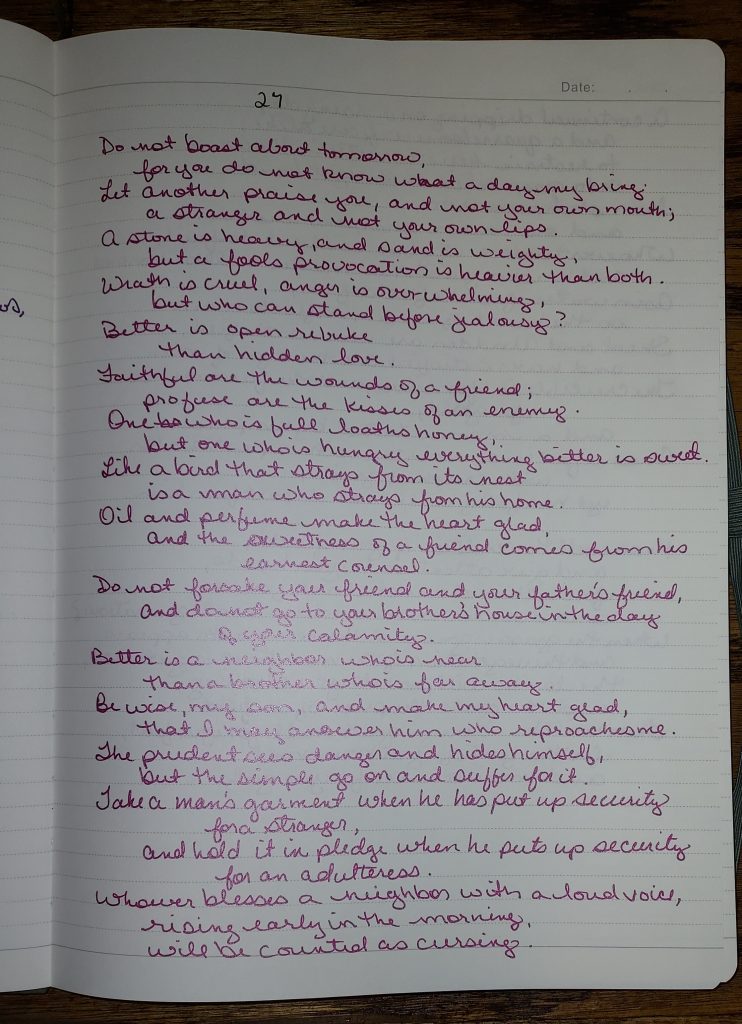 Date:
27
Do not boast about tomorrow,
for you do not know what a day my bring.
Let another praise you, and not your own mouth;
a stranger and not your own lips.
A stone is heavy, and sand is weighty,
but a fools provocation is heavier than both.
Wrath is cruel, anger is overwhelming,
but who can stand before jealousy?
Better is open rebuke
than hidden love.
Faithful are the wounds of a friend;
profuse are the kisses of an enemy.
One who is full loaths honey,
but one who is hungry everything bitter is sweet.
Like a bird that strays from its nest
is a man who strays from his home.
Oil and perfume make the heart glad,
and the sweetness of a friend comes from his
earnest counsel.
Do not forsake your friend and your father's friend,
and do not go to your brother's house in the day
of your calamity.
Better is a neighbor who is near
than a brother who is far away.
Be wise, my son, and make my heart glad,
that I may answer him who reproaches me.
The prudent sees danger and hides himself,
but the simple go on and suffer for it.
Take a man's garment when he has put up security
for a stranger,
and hold it in pledge when he puts up security
for an adulteress.
Whoever blesses a neighbor with a loud voice,
rising early in the morning,
will be counted as cursing.